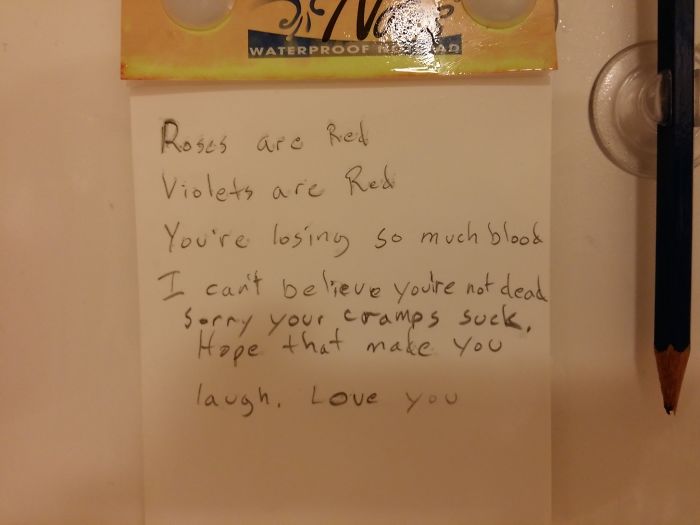 WATERPROOF
Roses are Red
Violets are Red
You're losing so much blood
I can't believe you're not dead
Sorry your cramps suck.
Hope that make you
laugh. Love you